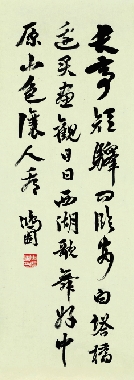 長亭短驛臨安白塔橋
邊買畫觀日日西湖歌舞好中
原山色讓人看